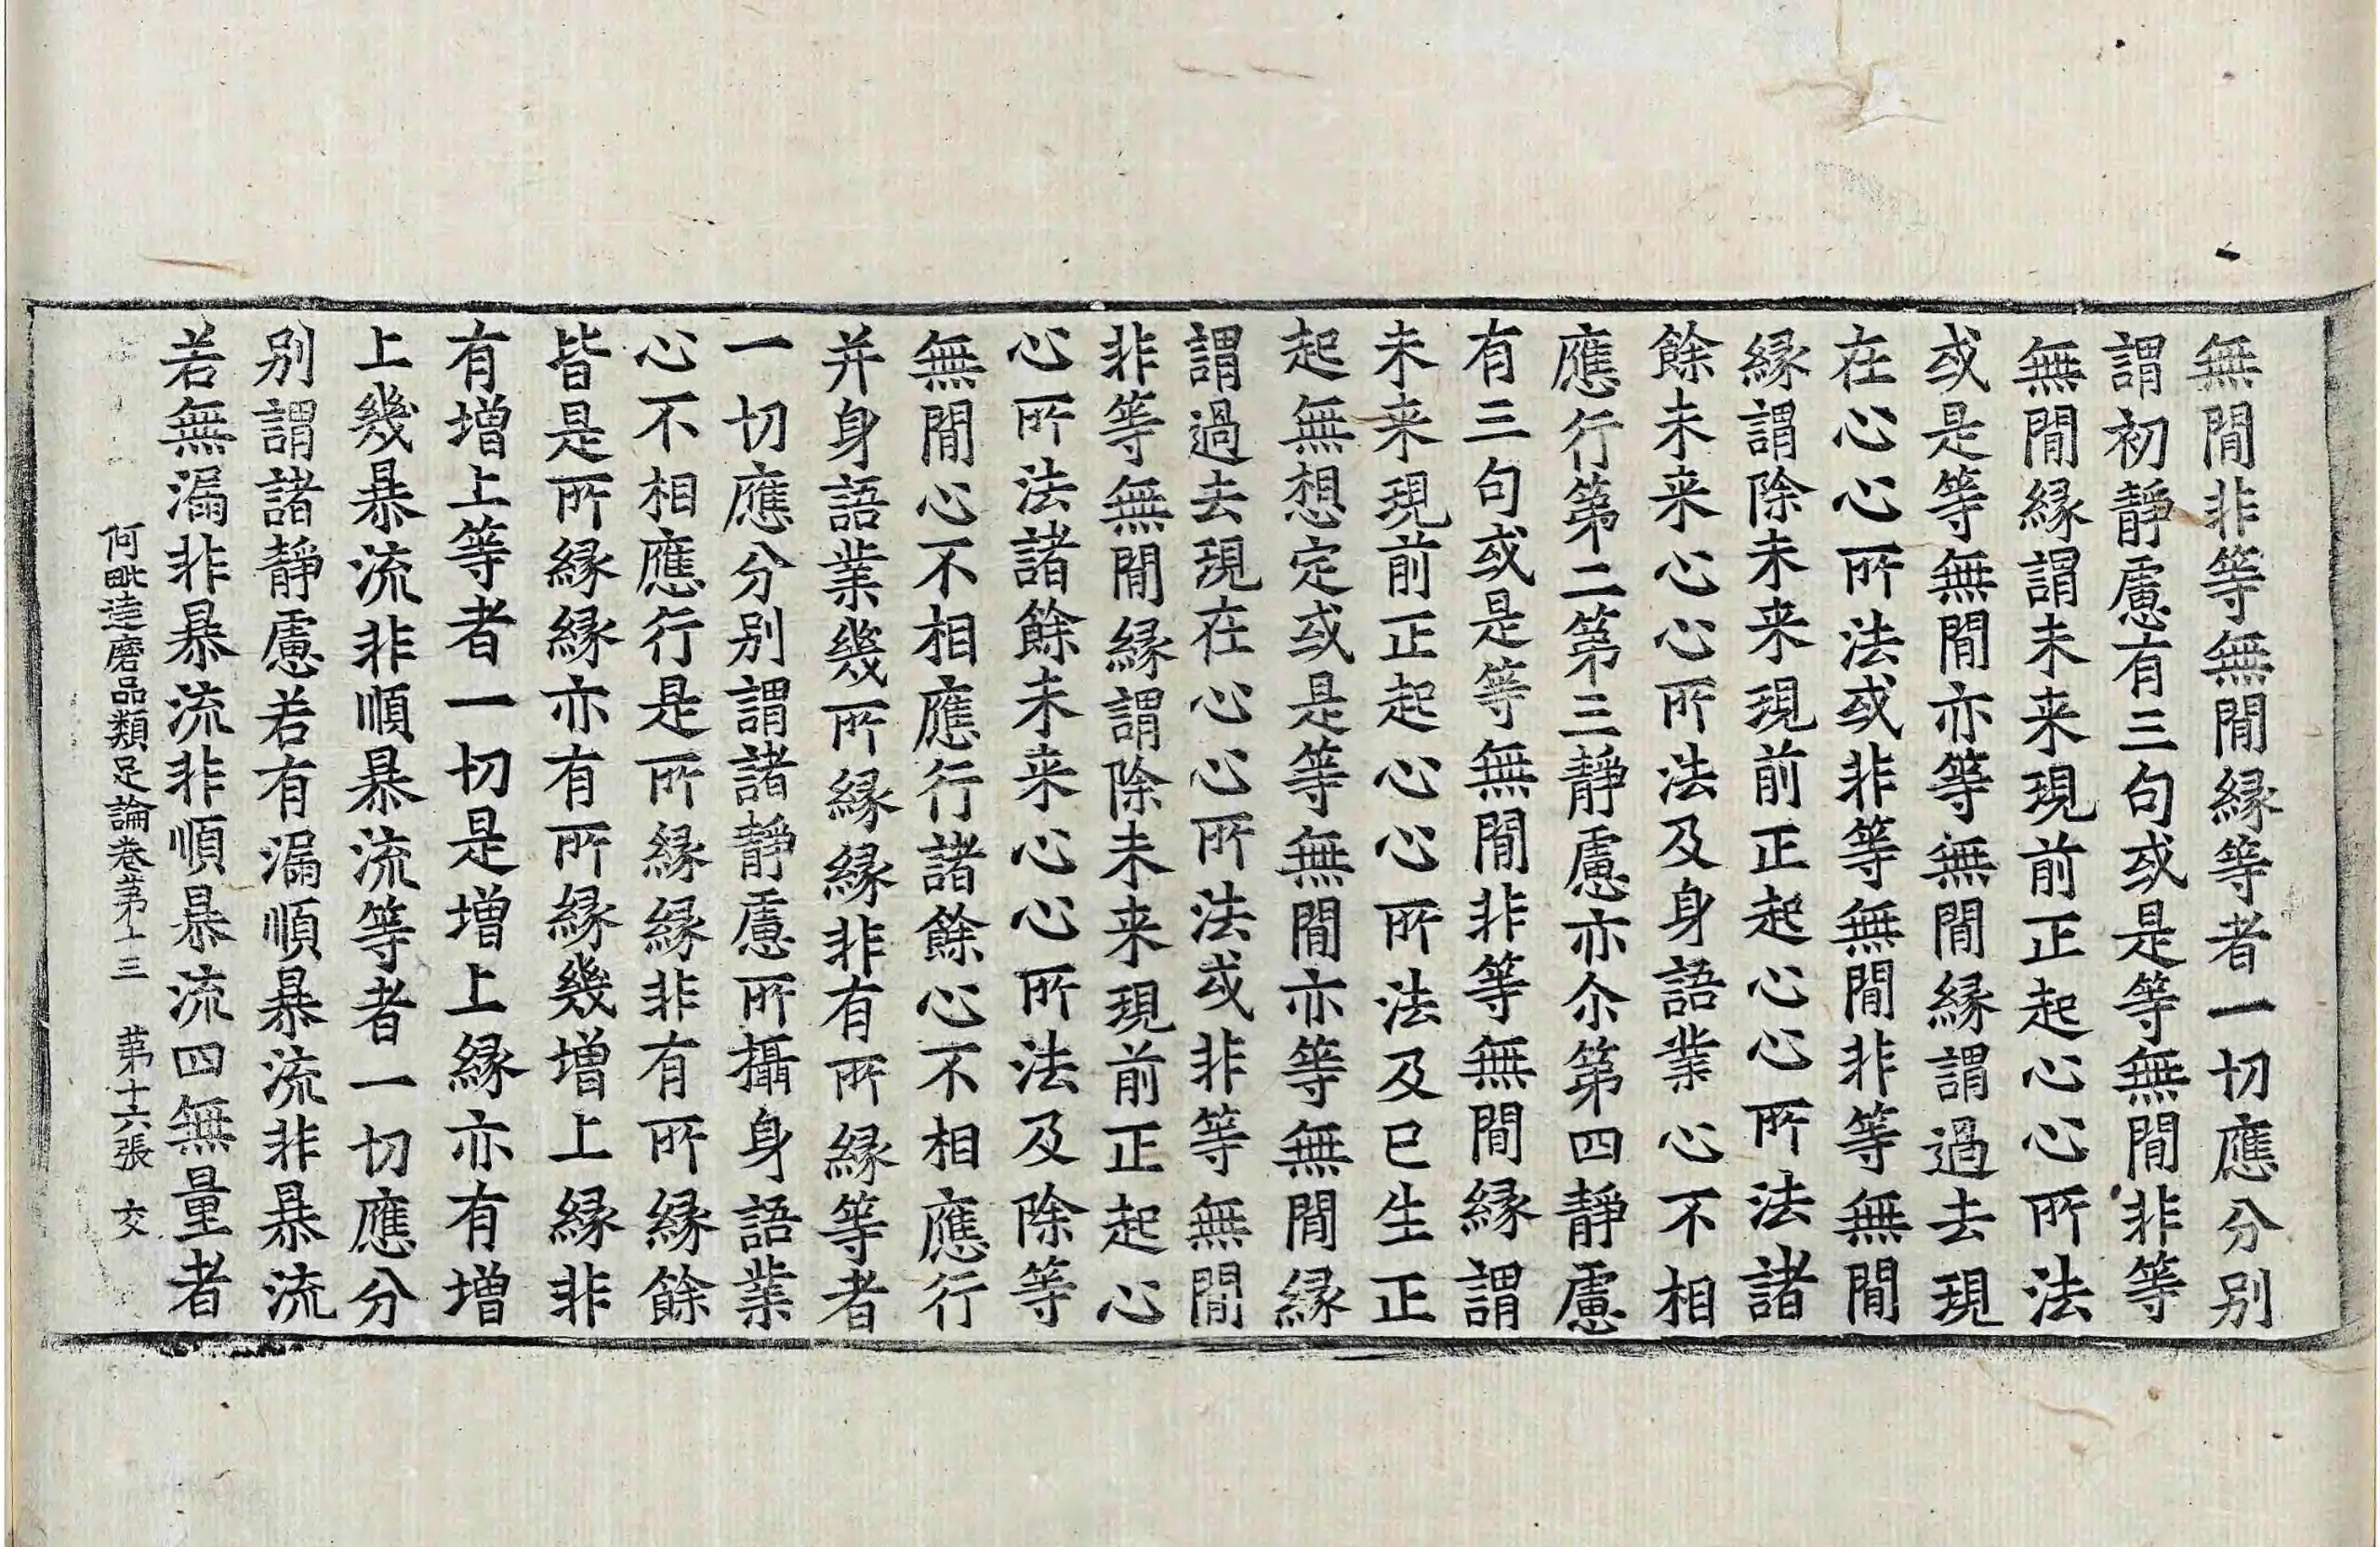 無閒非等無閒縁等者一切應分別
謂初靜慮有三句或是等無閒非等
無閒縁謂未来現前正起心心所法
或是等無閒亦等無閒縁謂過去現
在心心所法或非等無閒非等無閒
縁謂除未来現前正起心心所法諸
餘未来心心所法及身語業心不相
應行第二第三靜慮亦尒第四靜慮
有三句或是等無閒非等無閒縁謂
未来現前正起心心所法及已生正
起無想定或是等無閒亦等無閒縁
謂過去現在心心所法或非等無閒
非等無閒縁謂除未来現前正起心
心所法諸餘未来心心所法及除等
無閒心不相應行諸餘心不相應行
并身語業幾所縁縁非有所縁等者
一切應分别謂諸靜慮所攝身語業
心不相應行是所縁縁非有所縁餘
皆是所縁縁亦有所縁幾增上縁非
有增上等者一切是增上縁亦有增
上幾暴流非順暴流等者一切應分
别謂諸靜慮若有漏順暴流非暴流
若無漏非暴流非順暴流四無量者
阿毗達磨品類足論卷第十三 第十六張 交